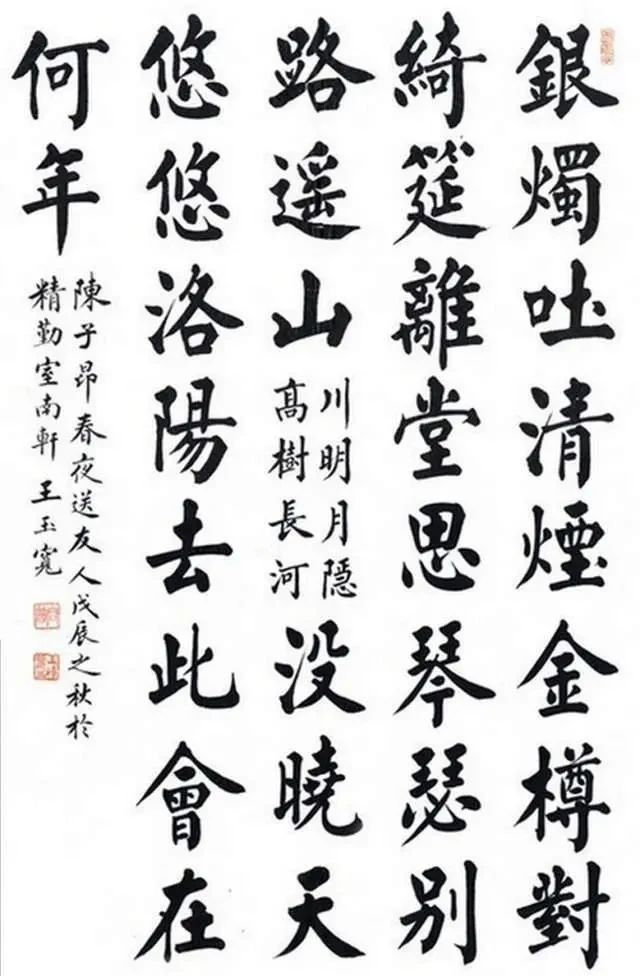 銀燭吐清煙金樽對
綺筵離堂思琴瑟別
路遥山
川明月隱
髙樹長河
没曉天
悠悠洛陽去此會在
何年
陳子昂春夜送友人戊辰之秋於
精勤室南軒王玉寬